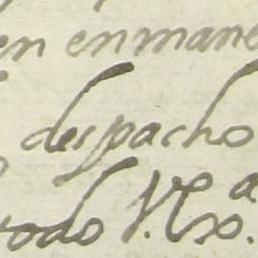 en enmane
despacho
todo V. Exª.